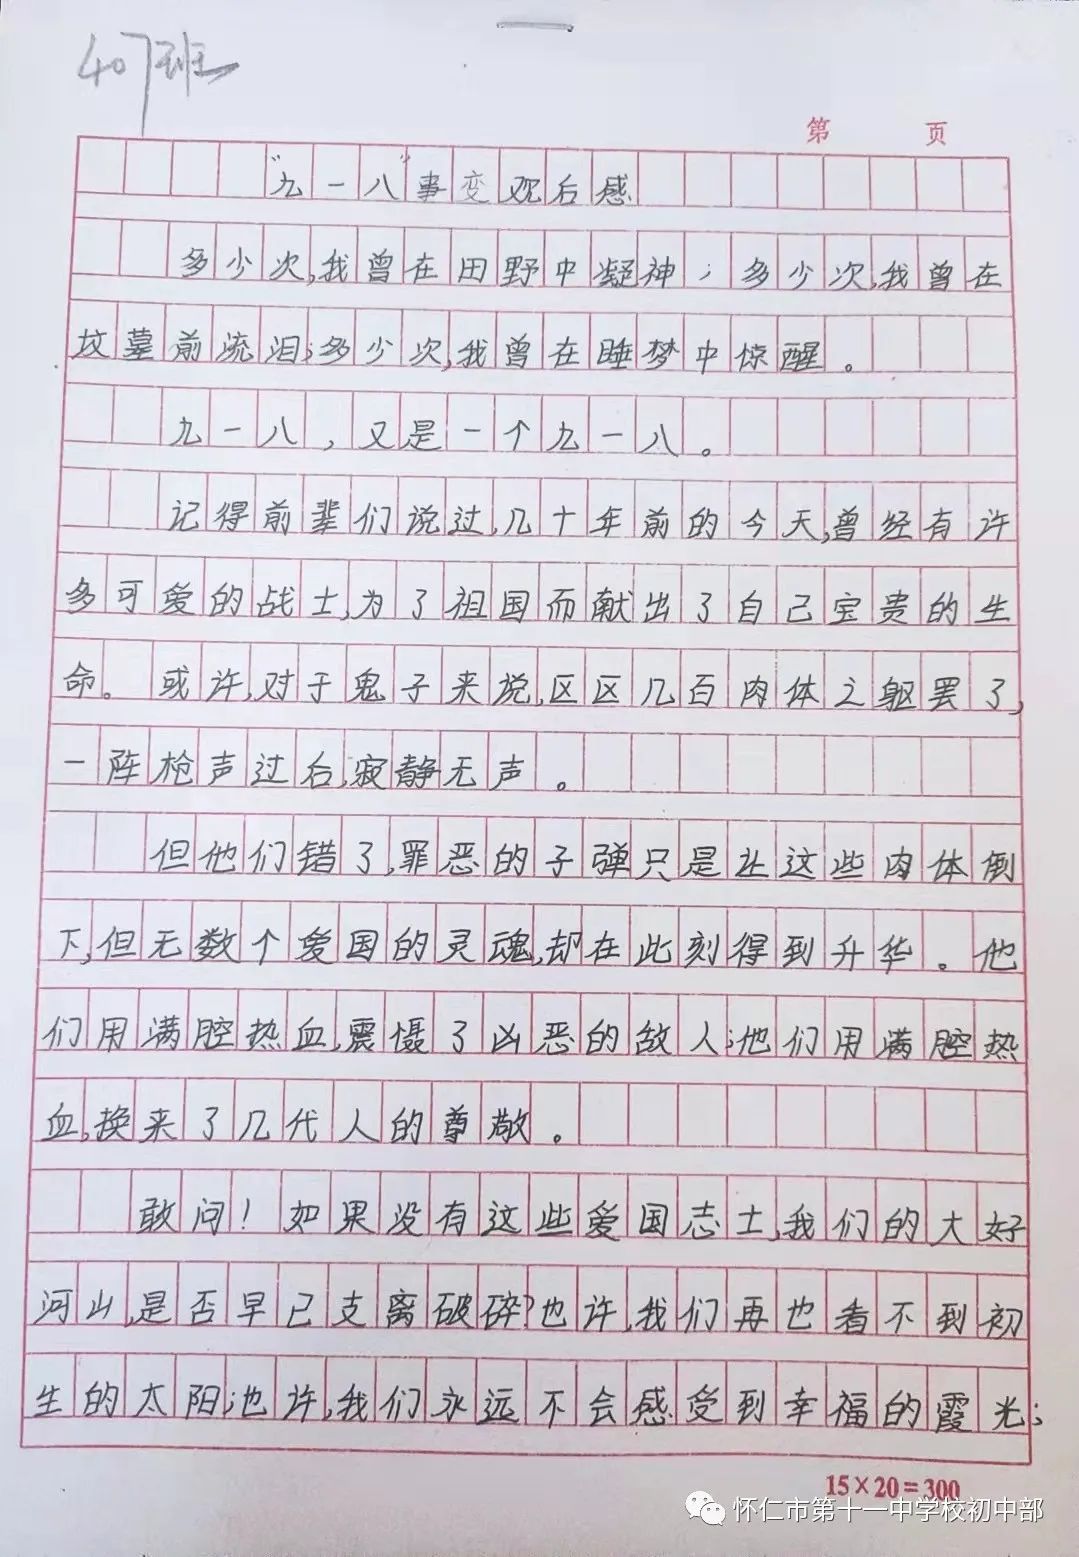 407班
第 页
"九一八"事变观后感
多少次,我曾在田野中凝神;多少次,我曾在
坟墓前流泪;多少次,我曾在睡梦中惊醒。
九一八,又是一个九一八。
记得前辈们说过,几十年前的今天,曾经有许
多可爱的战士,为了祖国而献出了自己宝贵的生
命。或许,对于鬼子来说,区区几百肉体之躯罢了,
一阵枪声过后,寂静无声。
但他们错了,罪恶的子弹只是让这些肉体倒
下,但无数个爱国的灵魂,却在此刻得到升华。他
们用满腔热血,震慑了凶恶的敌人;他们用满腔热
血,换来了几代人的尊敬。
敢问!如果没有这些爱国志士,我们的大好
河山,是否早已支离破碎?也许,我们再也看不到初
生的太阳;也许,我们永远不会感受到幸福的霞光;
15×20=300
怀仁市第十一中学校初中部